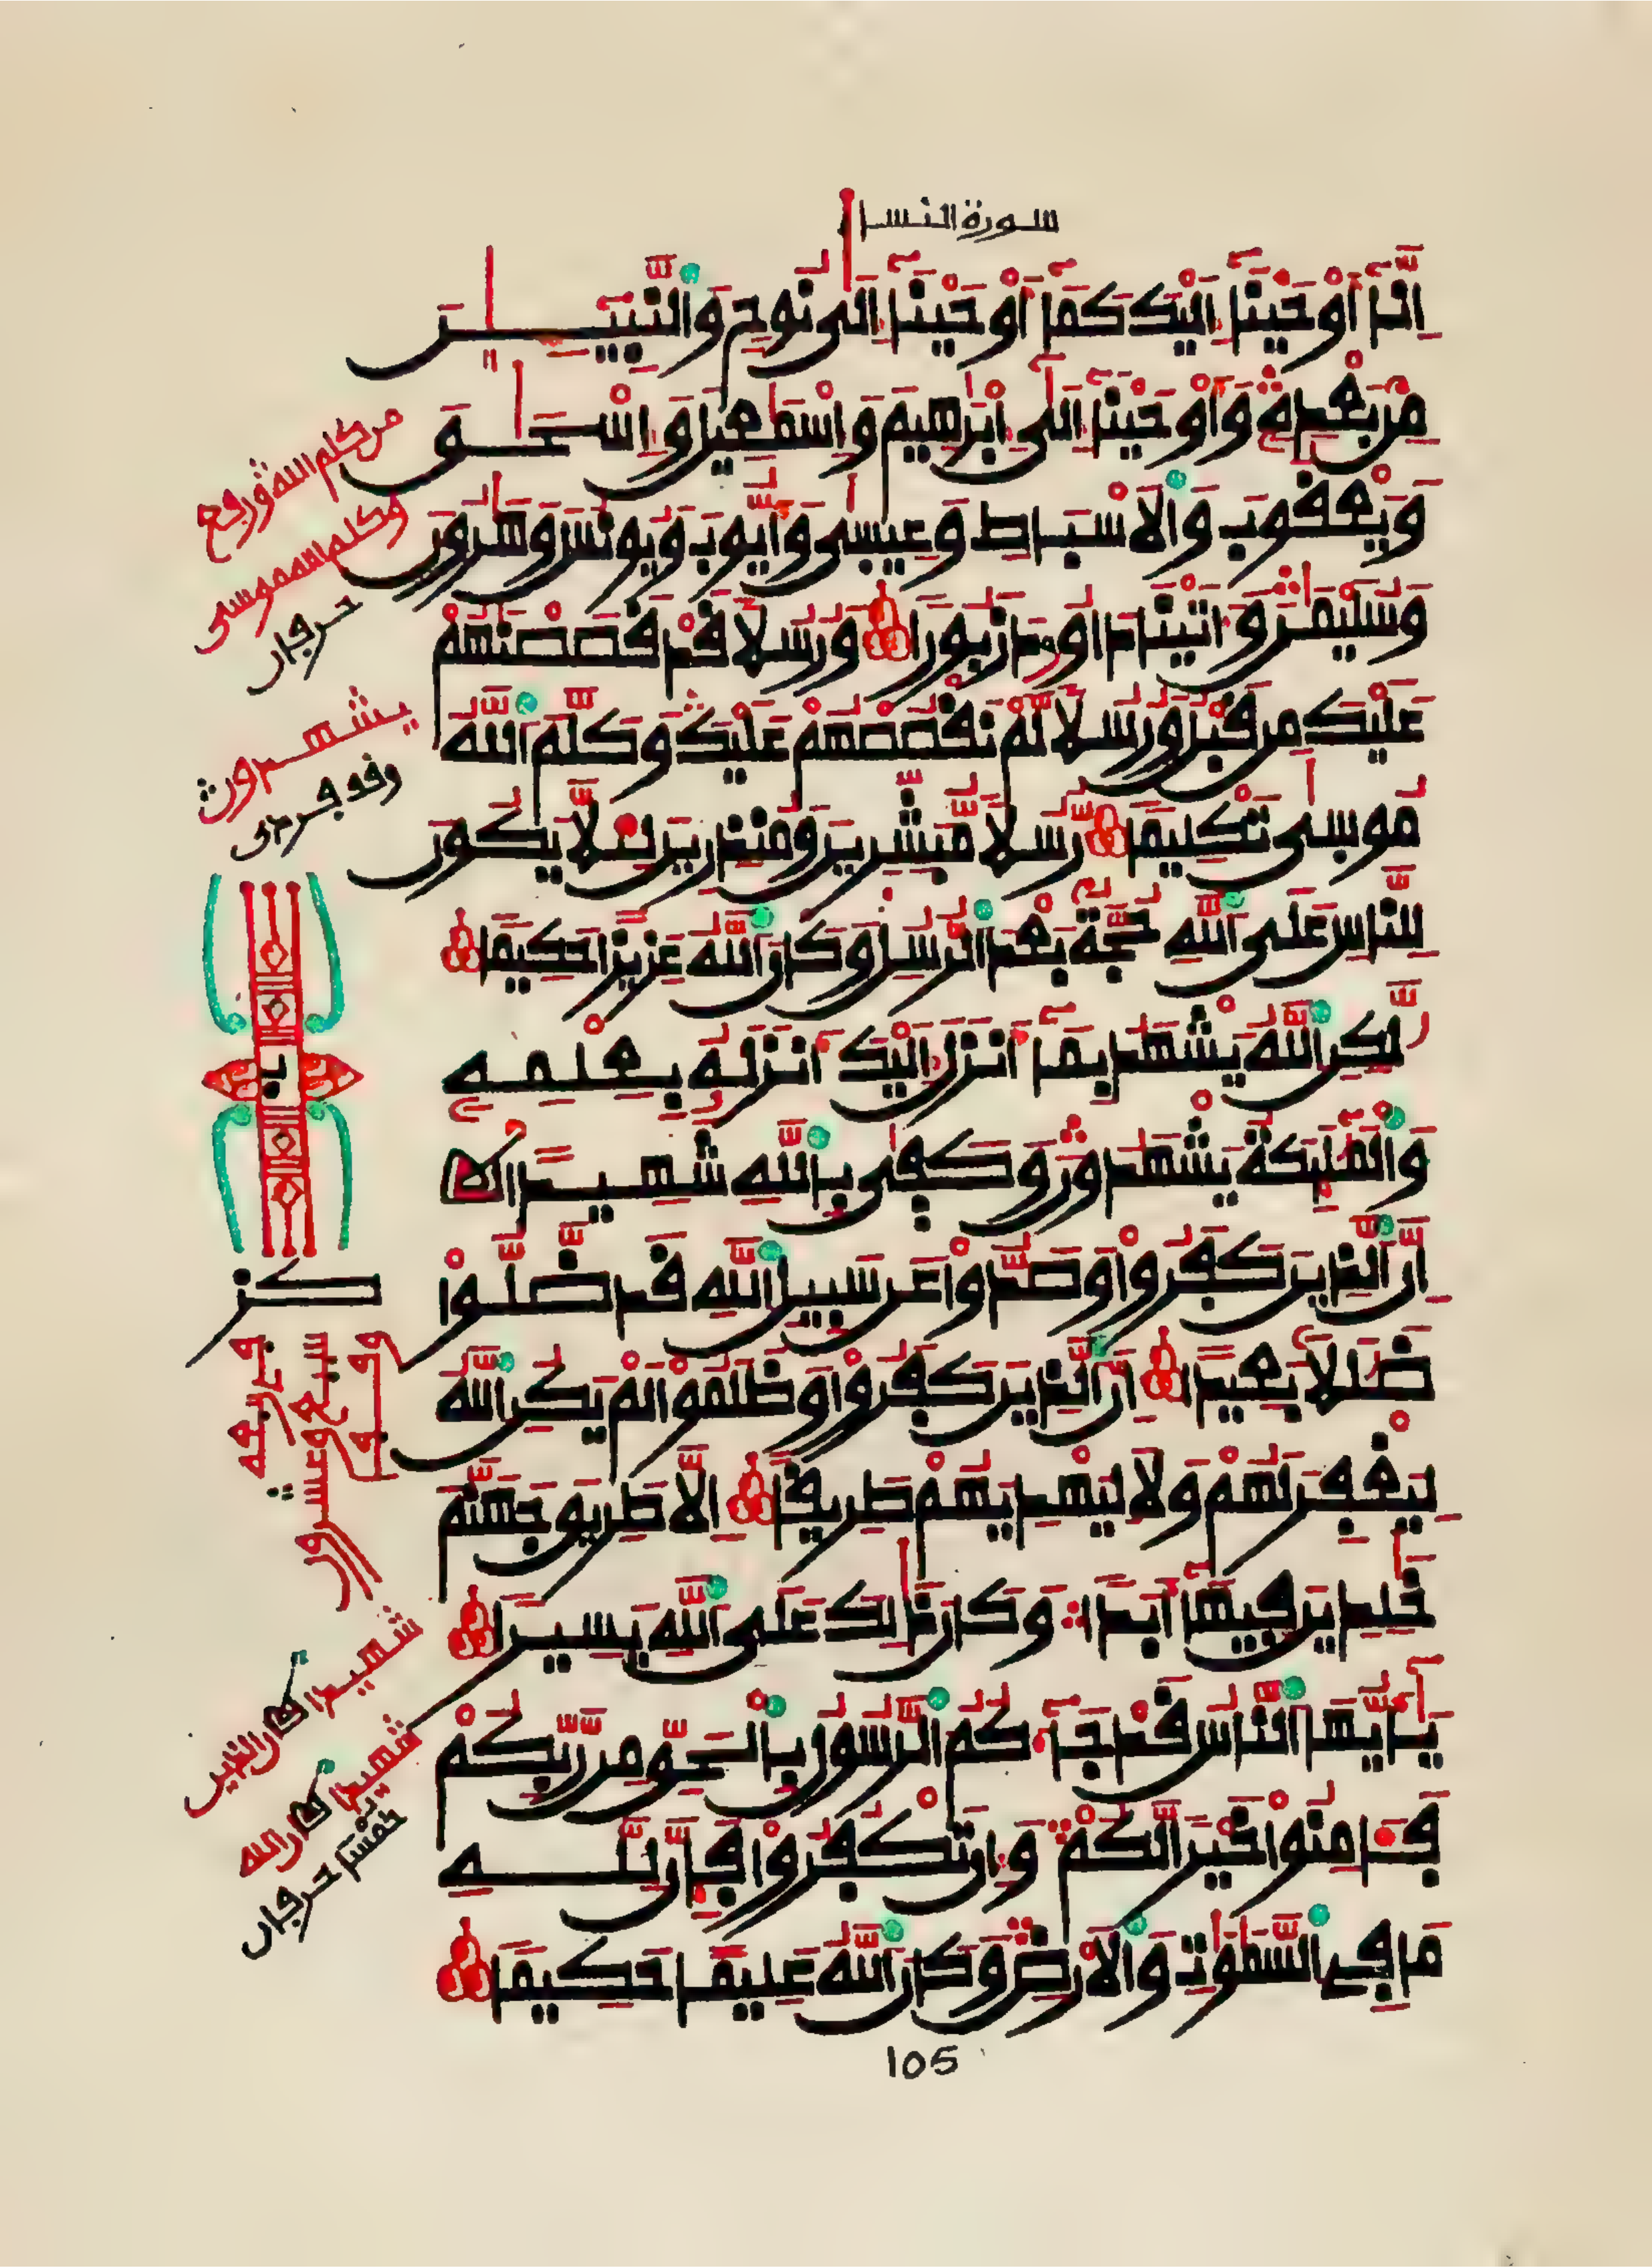 سورة النسا
اِنَّآ أَوْحَيْنَآ إِلَيْكَ كَمَآ أَوْحَيْنَآ إِلَىٰ نُوحٍ وَالنَّبِيِّـــنَ
مِنۢ بَعْدِهِۦ وَأَوْحَيْنَآ إِلَىٰٓ إِبْرَٰهِيمَ وَإِسْمَٰعِيلَ وَإِسْحَٰـقَ
وَيَعْقُوبَ وَالَاسْبَاطِ وَعِيسَىٰ وَأَيُّوبَ وَيُونُسَ وَهَٰرُونَ
وَسُلَيْمَٰنَ وَءَاتَيْنَا دَاوُۥدَ زَبُورًا وَرُسُلًا قَدْ قَصَصْنَٰهُمْ
عَلَيْكَ مِن قَبْلُ وَرُسُلًا لَّمْ نَقْصُصْهُمْ عَلَيْكَ وَكَلَّمَ اللَّهُ
مُوسَىٰ تَكْلِيمًا رُّسُلًا مُّبَشِّرِينَ وَمُنذِرِينَ لِيَلَّا يَكُونَ
لِلنَّاسِ عَلَى اللَّهِ حُجَّةٌۢ بَعْدَ الرُّسُلِ وَكَانَ اللَّهُ عَزِيزًا حَكِيمًا
لَّٰكِنِ اللَّهُ يَشْهَدُ بِمَآ أَنزَلَ إِلَيْكَ أَنزَلَهُۥ بِعِلْمِهِۦ
وَالْمَلَٰٓئِكَةُ يَشْهَدُونَ وَكَفَىٰ بِاللَّهِ شَهِيدًا
إِنَّ الَّذِينَ كَفَرُوا وَصَدُّوا عَن سَبِيلِ اللَّهِ قَد ضَّلُّوا
ضَلَٰلًۢا بَعِيدًا إِنَّ الَّذِينَ كَفَرُوا وَظَلَمُوا لَمْ يَكُنِ اللَّهُ
لِيَغْفِرَ لَهُمْ وَلَا لِيَهْدِيَهُمْ طَرِيقًا إِلَّا طَرِيقَ جَهَنَّمَ
خَٰلِدِينَ فِيهَآ أَبَدًا وَكَانَ ذَٰلِكَ عَلَى اللَّهِ يَسِيرًا
يَٰٓأَيُّهَا النَّاسُ قَدْ جَآءَكُمُ الرَّسُولُ بِالْحَقِّ مِن رَّبِّكُمْ
فَـَٔامِنُوا خَيْرًا لَّكُمْ وَإِن تَكْفُرُوا فَإِنَّ لِلَّـــهِ
مَا فِي السَّمَٰوَٰتِ وَالَارْضِ وَكَانَ اللَّهُ عَلِيمًا حَكِيمًا
105
من كلم الله ورفع
وكلم الله موسى
حرفان
يشهدون
كز
شهيدا ان الذين
شهيدا كان الله
حرفان